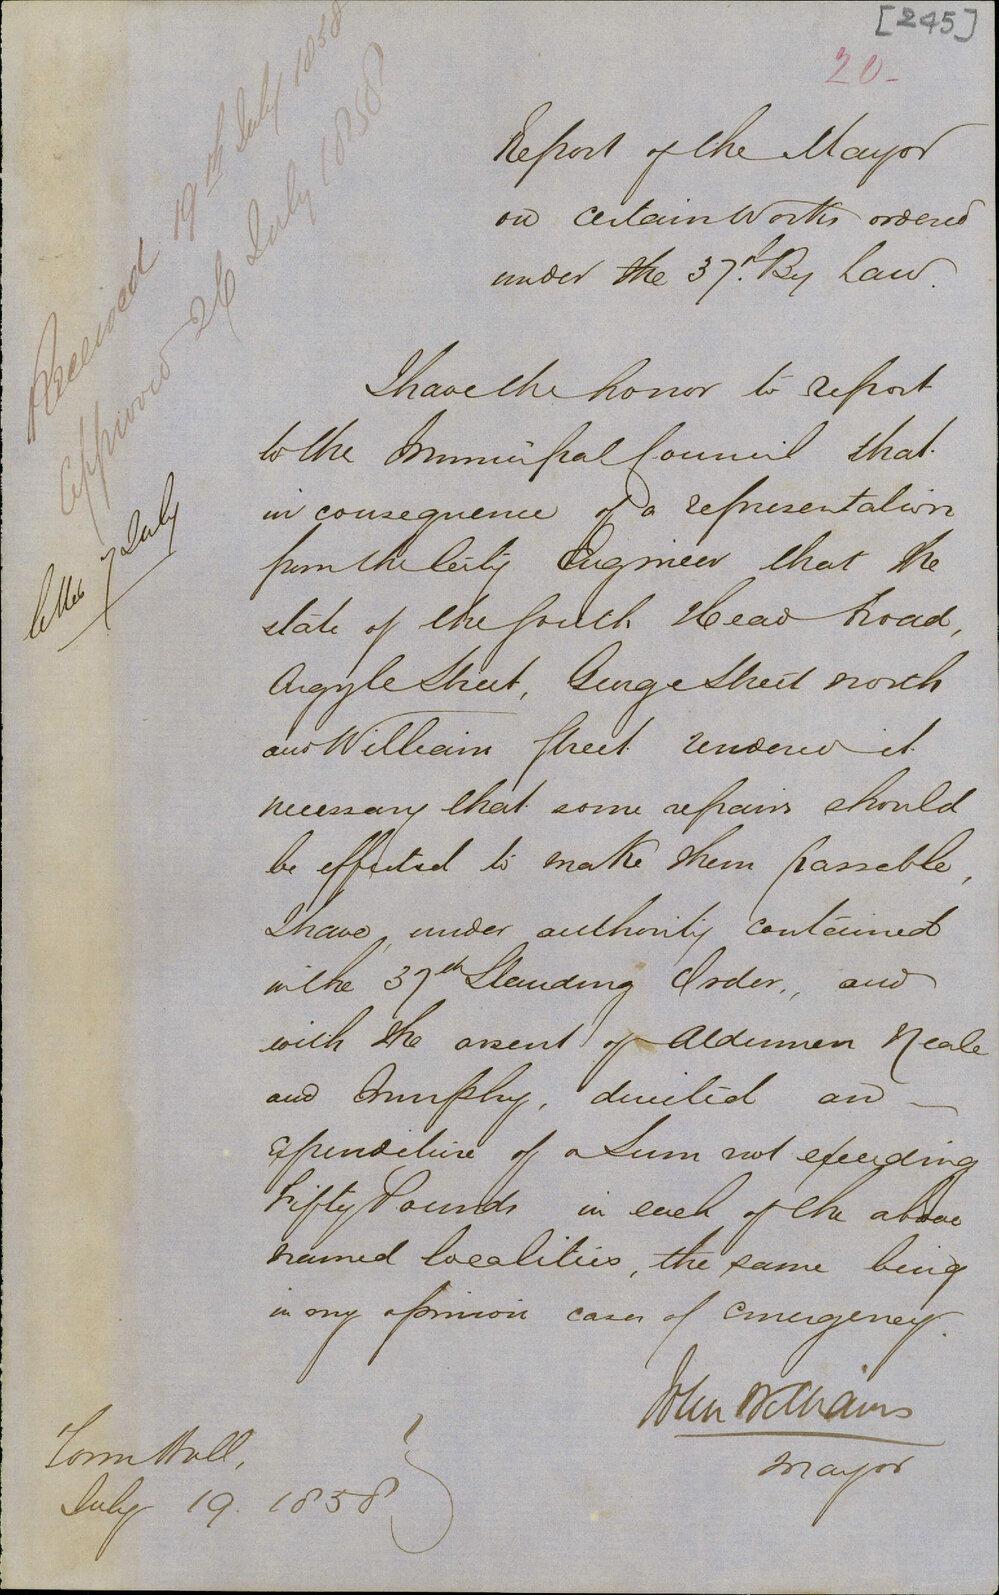 [245]
20-
Report of the Mayor
on certain Works ordered
under the 37th By Law.
Received 19th July 1858
Approved 26 July 1858
7 July
I have the honor to report
to the Municipal Council that
in consequence of a representation
from the City Engineer that the
state of the South Head Road,
Argyle Street, George Street North
and William Street rendered it
necessary that some repairs should
be effected to make them passable,
I have, under authority contained
in the 37th Standing Order, and
with the assent of Aldermen Neale
and Murphy, directed an
expenditure of a Sum not exceeding
Fifty Pounds in each of the above
named localities, the same being
in my opinion cases of emergency.
John Williams
Mayor
Town Hall,
July 19. 1858